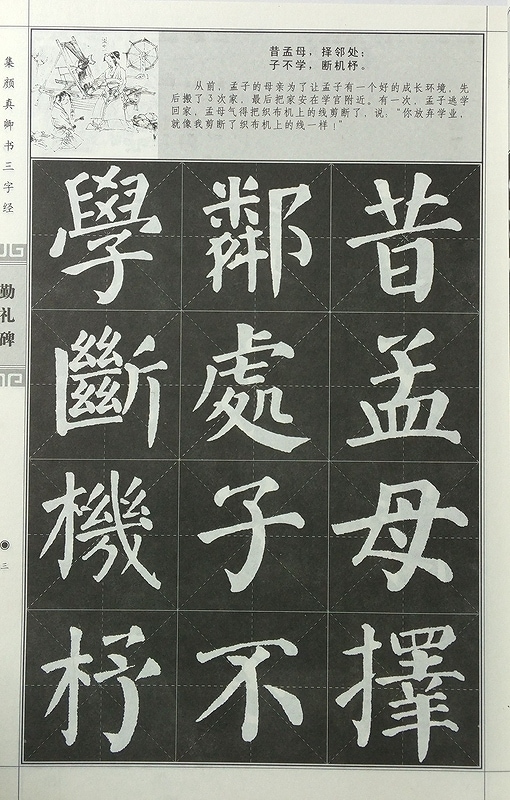 昔孟母，择邻处；
子不学，断机杼。
从前，孟子的母亲为了让孟子有一个好的成长环境，先
后搬了3次家，最后把家安在学宫附近。有一次，孟子逃学
回家，孟母气得把织布机上的线剪断了，说：“你放弃学业，
就像我剪断了织布机上的线一样！”
昔孟母擇
鄰處子不
學斷機杼
集颜真卿书三字经
勤礼碑
三